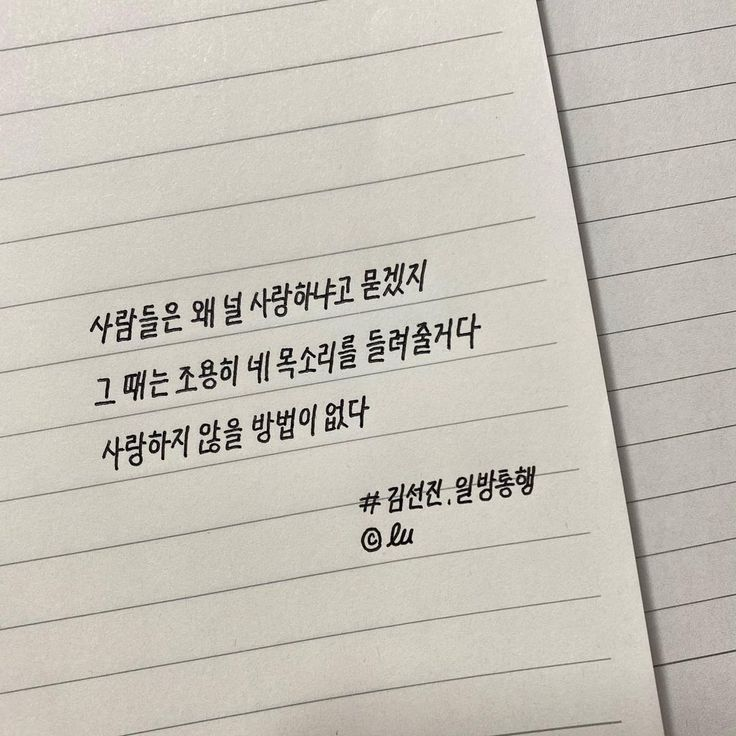 사람들은 왜 널 사랑하냐고 묻겠지
그 때는 조용히 네 목소리를 들려줄거다
사랑하지 않을 방법이 없다
# 김선진. 일방통행
© lu